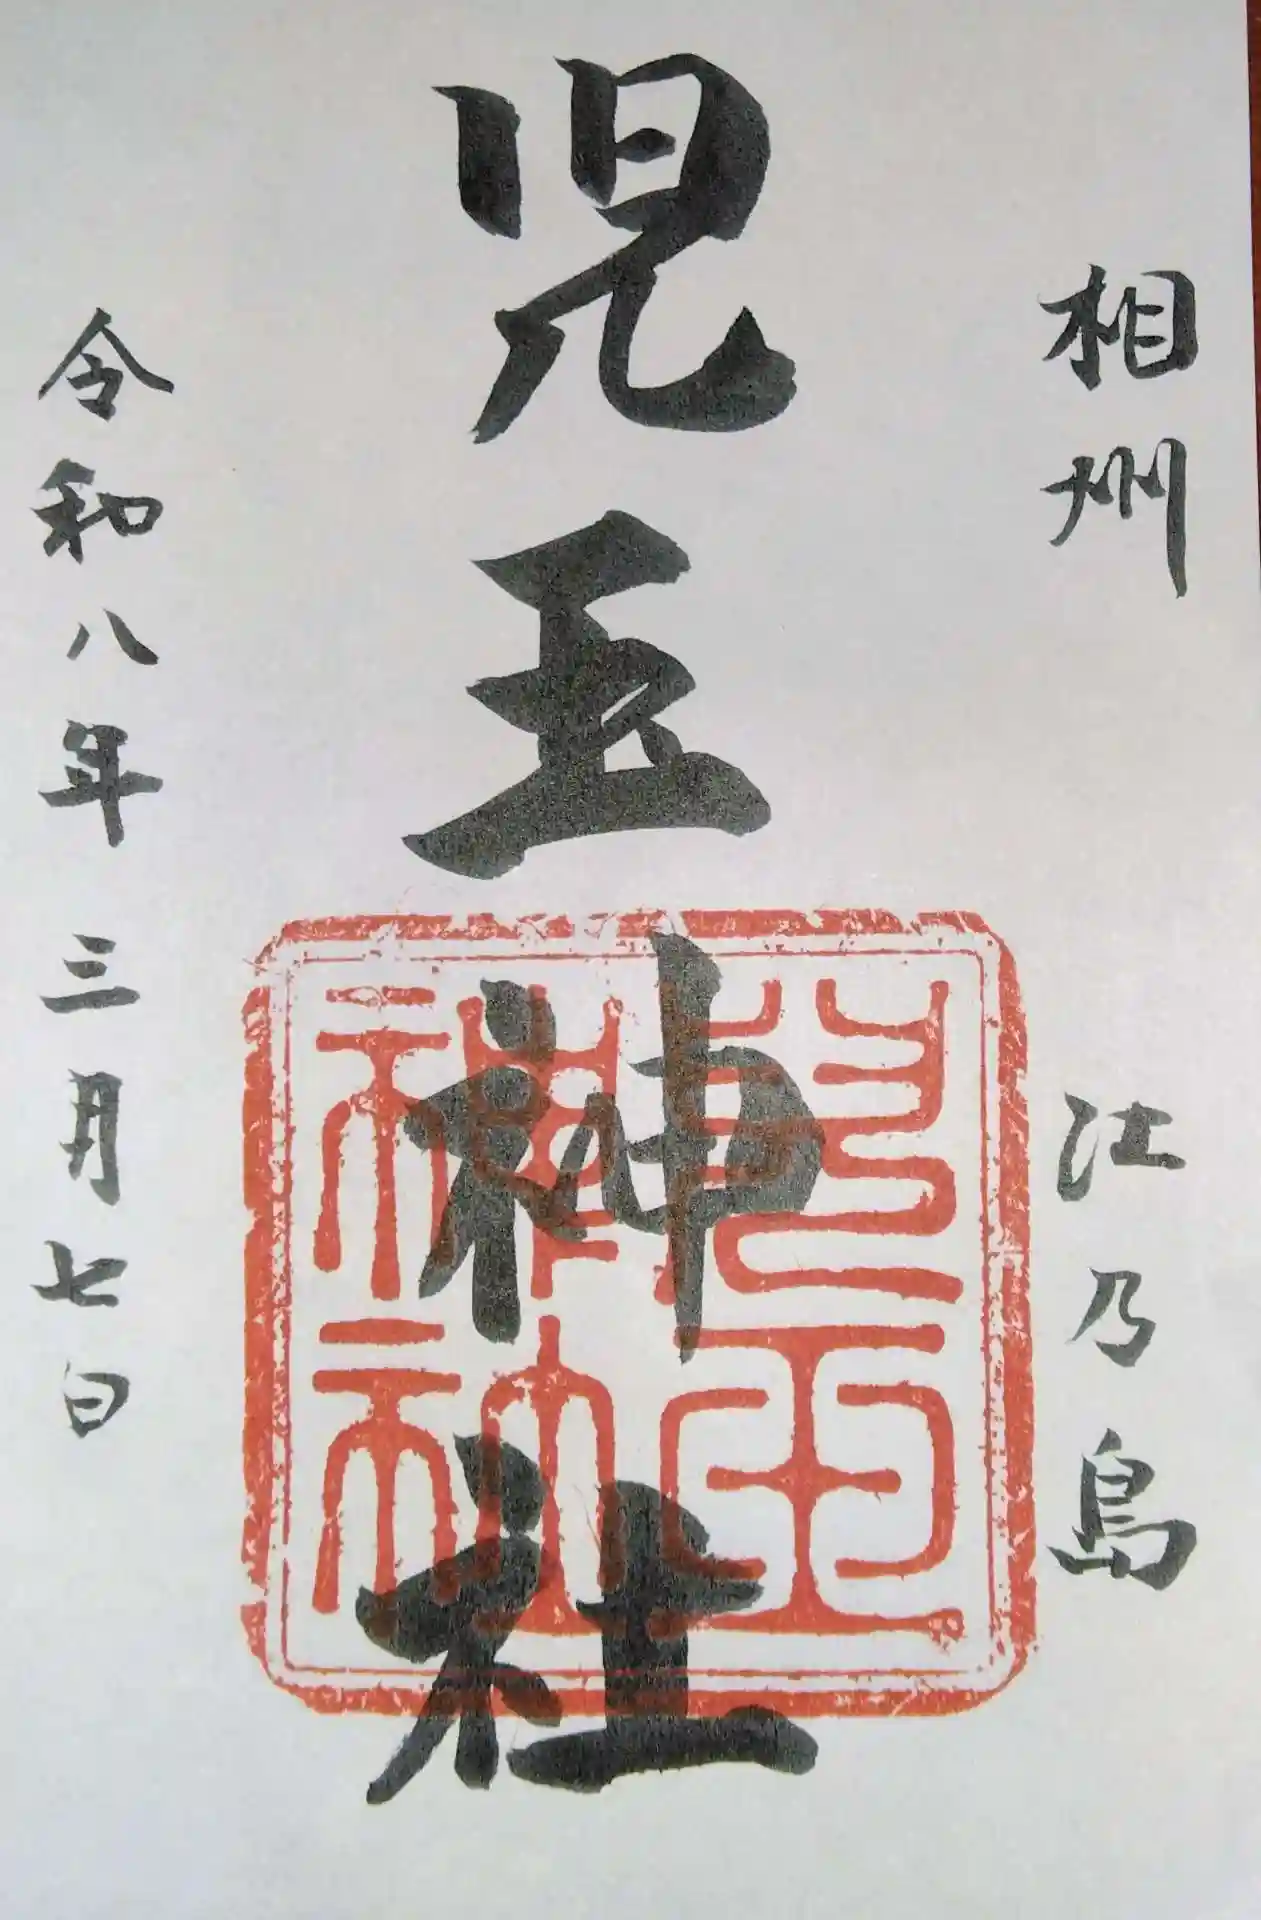 相州 江乃島
児玉神社
令和八年三月七日
児玉
神社